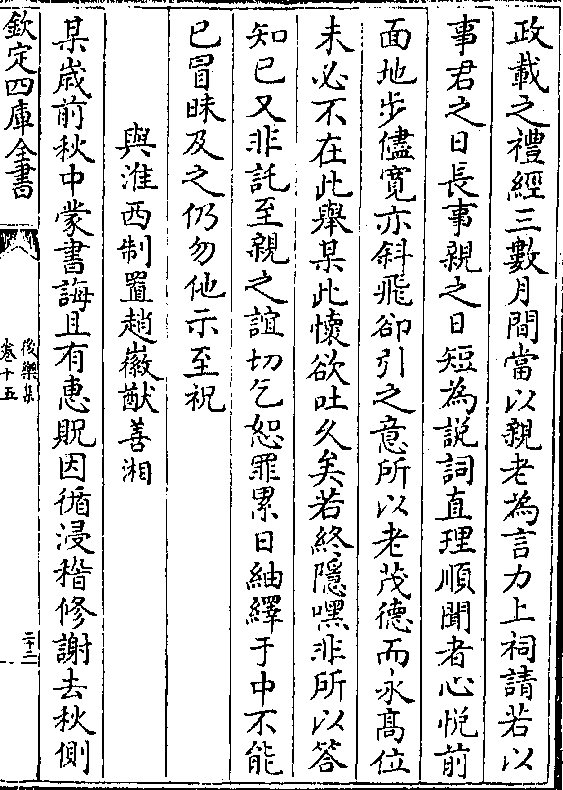 政載之禮經三數月間當以親老為言力上祠請若以
事君之日長事親之日短為説詞直理順聞者心悦前
面地步儘寛亦斜飛卻引之意所以老茂德而永髙位
未必不在此舉某此懐欲吐久矣若終隱嘿非所以答
知已又非託至親之誼切乞恕罪累日紬繹于中不能
已冒昧及之仍勿他示至祝
與淮西制置趙徽猷善湘
某歳前秋中蒙書誨且有惠貺因循浸稽修謝去秋側
欽定四庫全書
後樂集
卷十五
二十二